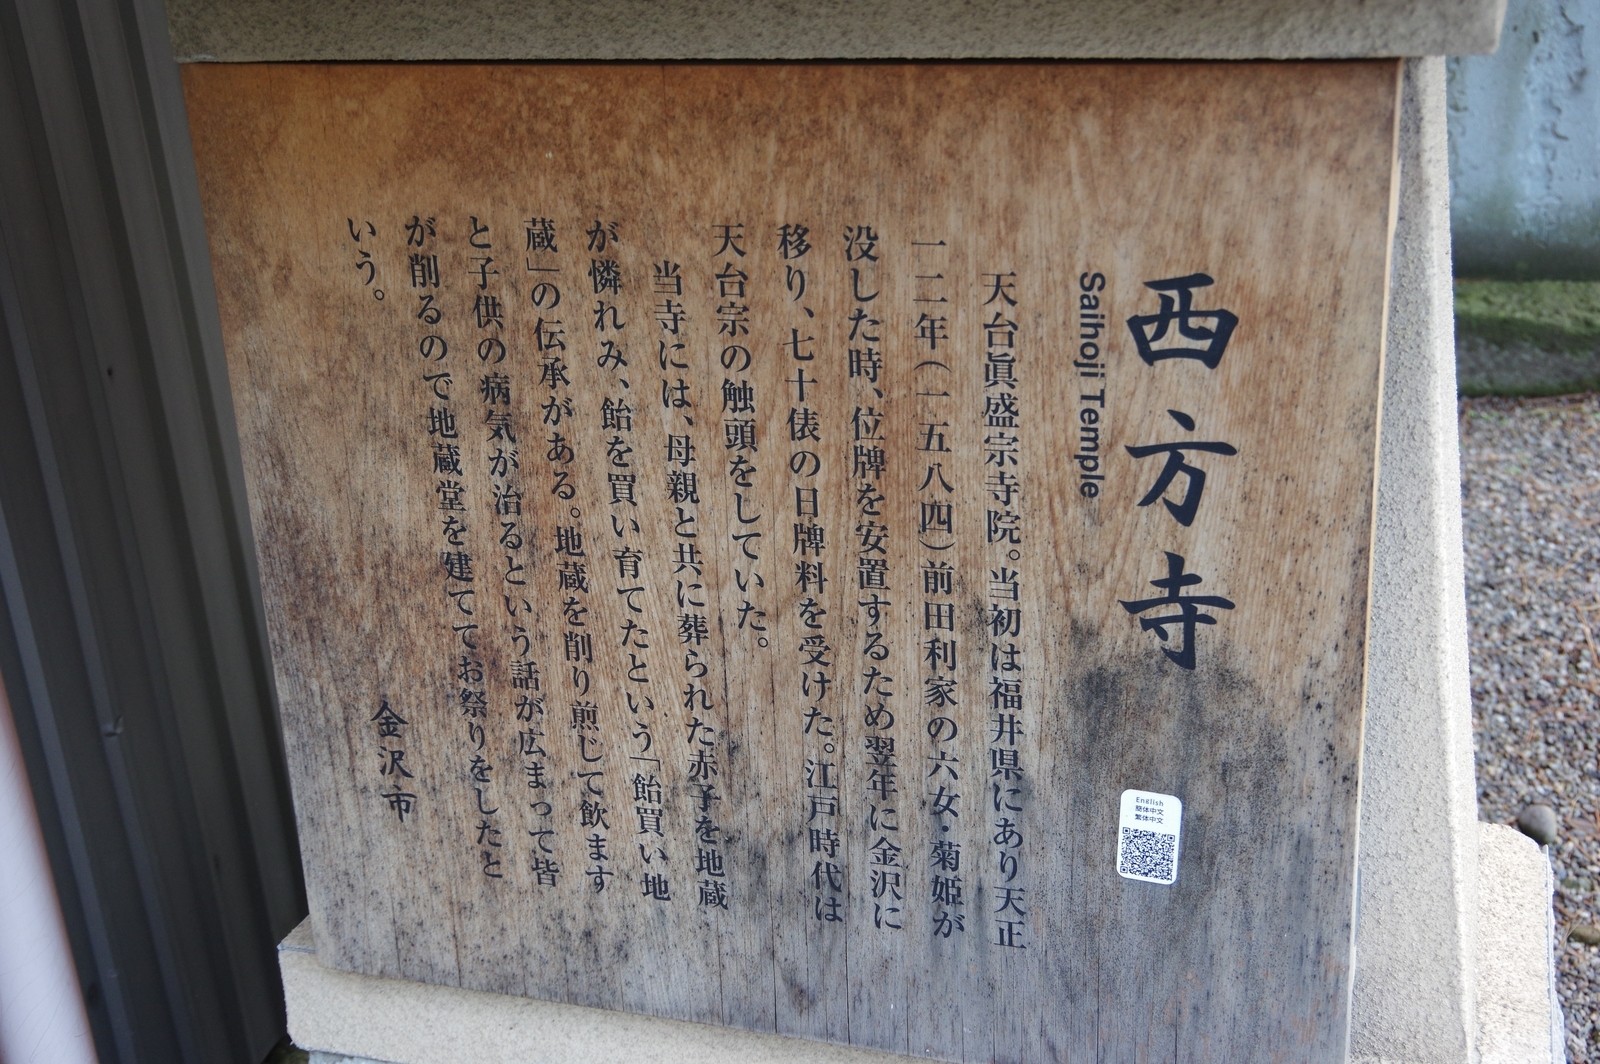 西方寺
Saihoji Temple
天台眞盛宗寺院。当初は福井県にあり天正
一二年（一五八四）前田利家の六女・菊姫が
没した時、位牌を安置するため翌年に金沢に
移り、七十俵の日牌料を受けた。江戸時代は
天台宗の触頭をしていた。
当寺には、母親と共に葬られた赤子を地蔵
が憐れみ、飴を買い育てたという「飴買い地
蔵」の伝承がある。地蔵を削り煎じて飲ます
と子供の病気が治るという話が広まって皆
が削るので地蔵堂を建ててお祭りをしたと
いう。
金沢市
English
簡体中文
繁体中文